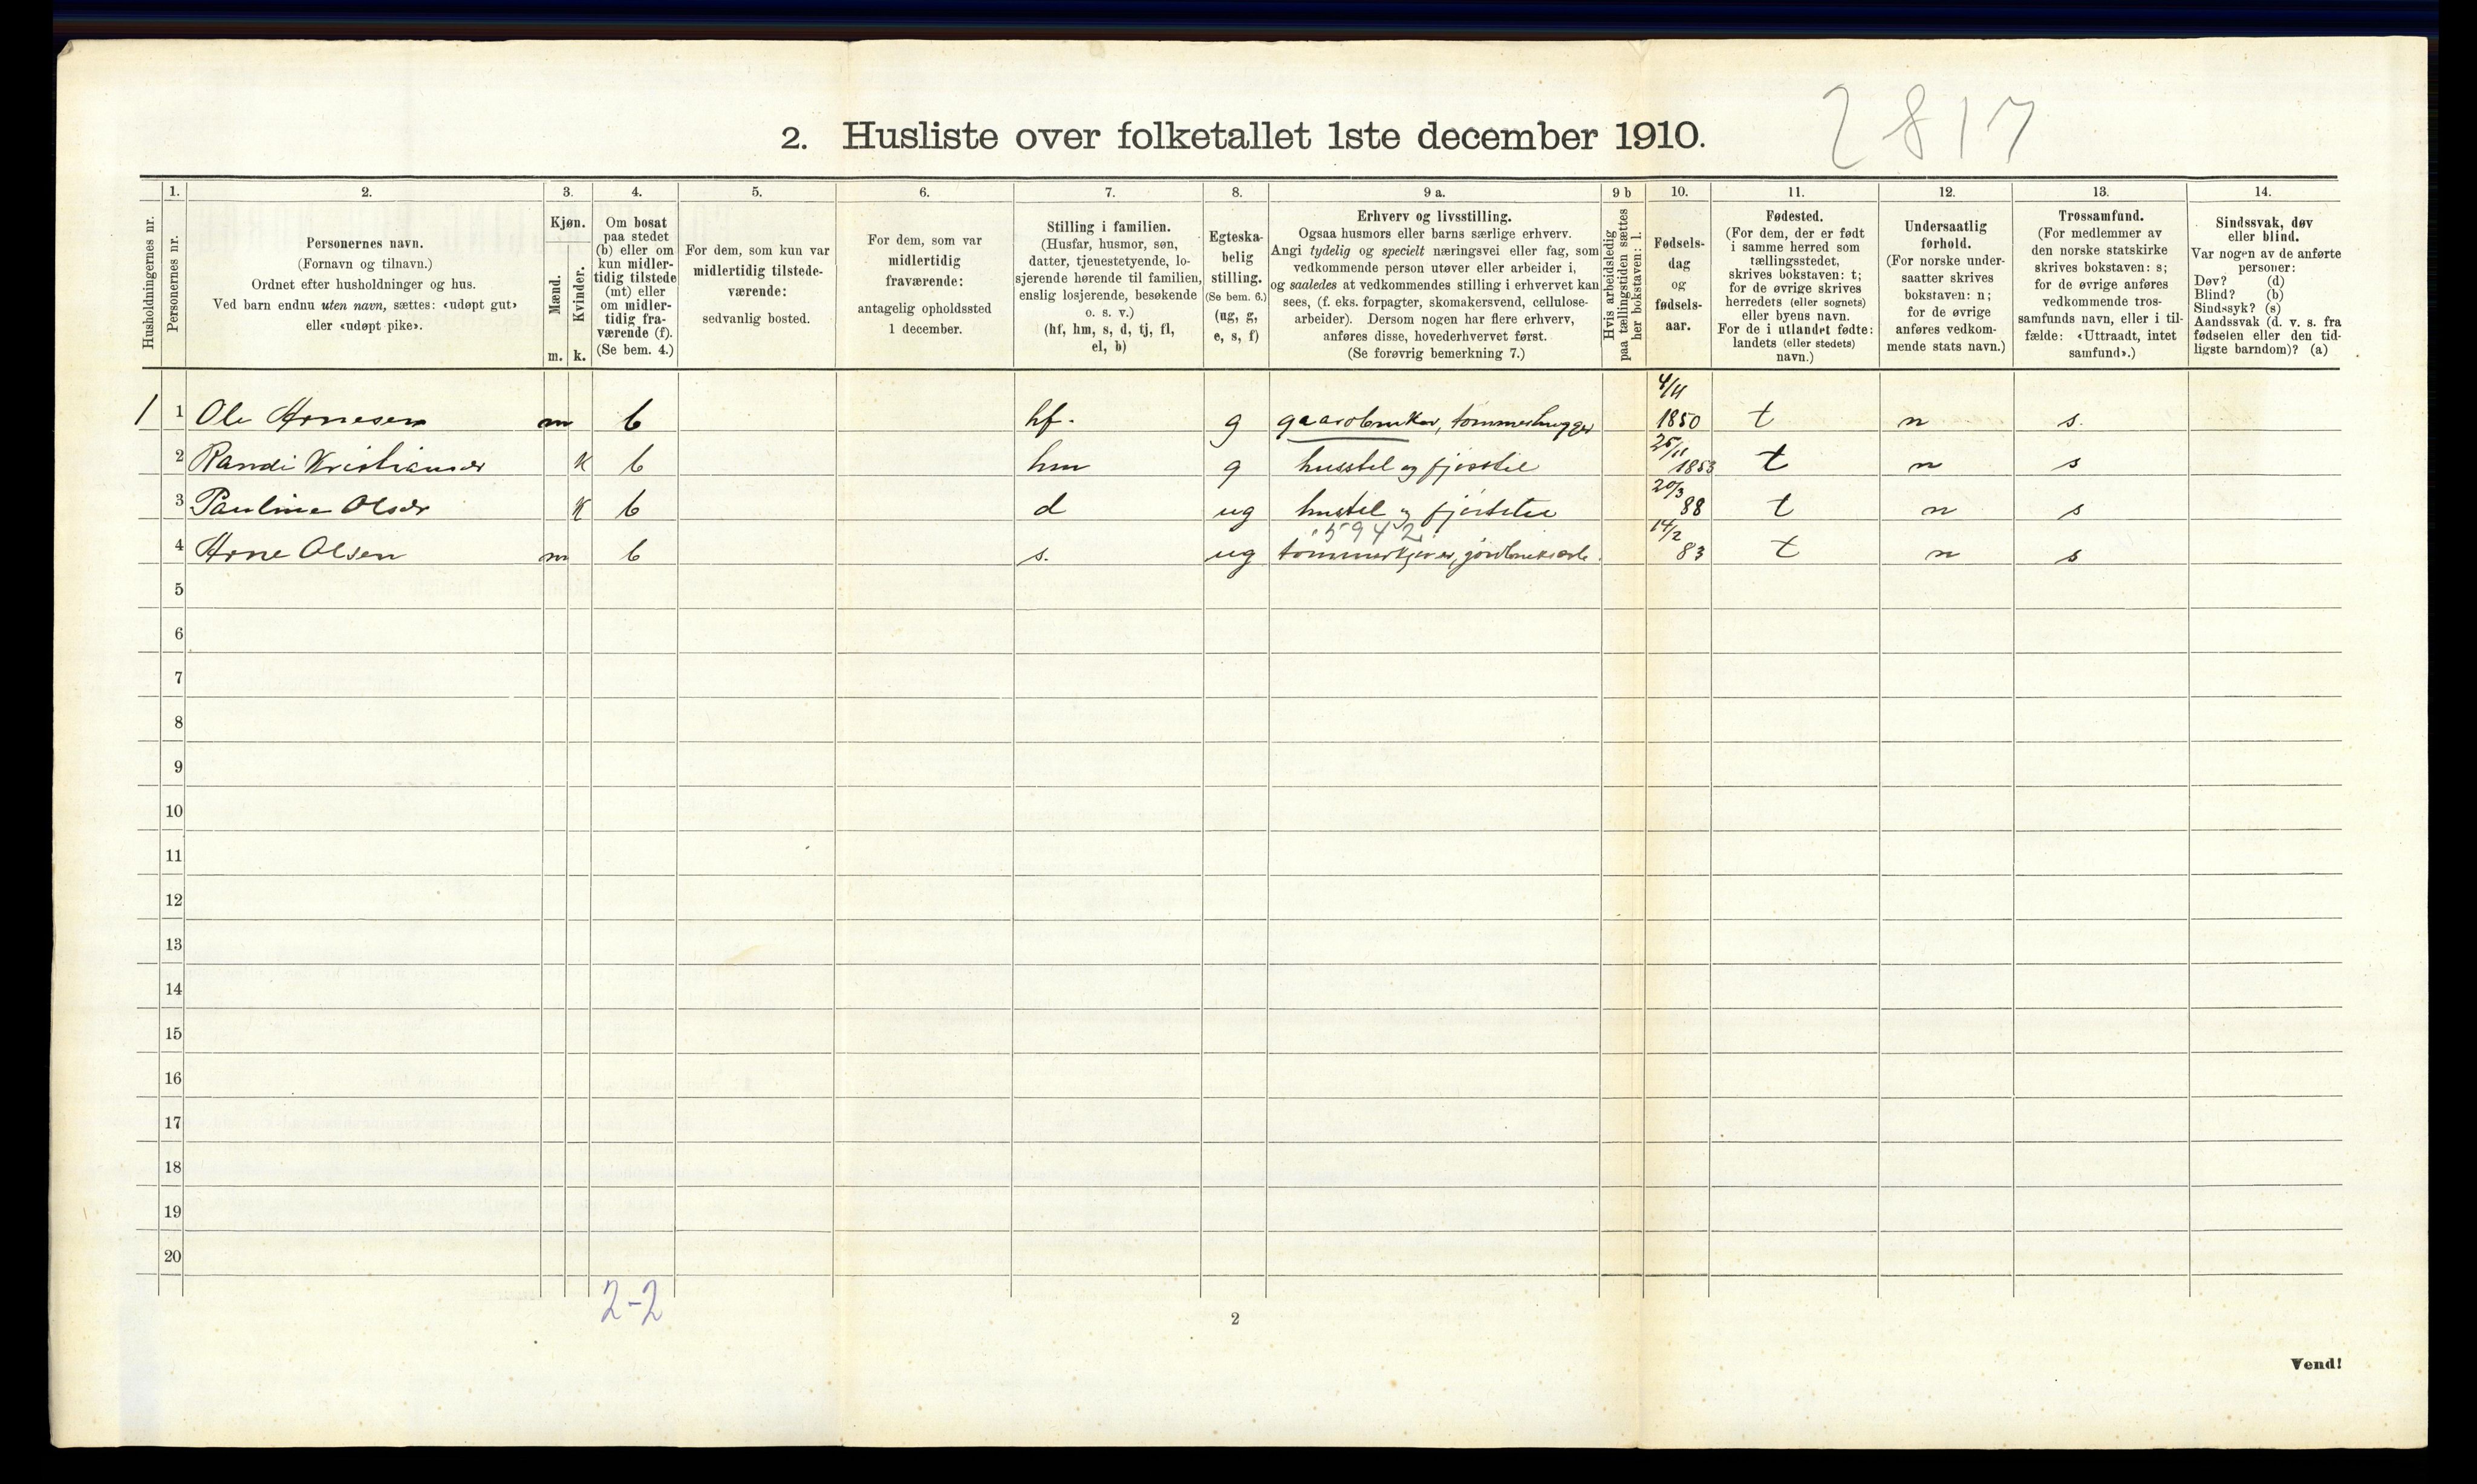 2817
2. Husliste over folketallet 1ste december 1910.
1. 2. 3. 4. 5. 6. 7. 8. 9 a. 9 b 10. 11. 12. 13. 14.
Husholdningernes nr.
Personernes nr.
Personernes navn.
(Fornavn og tilnavn.)
Ordnet efter husholdninger og hus.
Ved barn endnu uten navn, sættes: «udøpt gut»
eller «udøpt pike».
Kjøn.
Mænd.
Kvinder.
m. k.
Om bosat
paa stedet
(b) eller om
kun midler-
tidig tilstede
(mt) eller
om midler-
tidig fra-
værende (f).
(Se bem. 4.)
For dem, som kun var
midlertidig tilstede-
værende:
sedvanlig bosted.
For dem, som var
midlertidig
fraværende:
antagelig opholdssted
1 december.
Stilling i familien.
(Husfar, husmor, søn,
datter, tjenestetyende, lo-
sjerende hørende til familien,
enslig losjerende, besøkende
o. s. v.)
(hf, hm, s, d, tj, fl,
el, b)
Egteska-
belig
stilling.
(Se bem. 6.)
(ug, g,
e, s, f)
Erhverv og livsstilling.
Ogsaa husmors eller barns særlige erhverv.
Angi tydelig og specielt næringsvei eller fag, som
vedkommende person utøver eller arbeider i,
og saaledes at vedkommendes stilling i erhvervet kan
sees, (f. eks. forpagter, skomakersvend, cellulose-
arbeider). Dersom nogen har flere erhverv,
anføres disse, hovederhvervet først.
(Se forøvrig bemerkning 7.)
Hvis arbeidsledig
paa tællingstiden sættes
her bokstaven: l.
Fødsels-
dag
og
fødsels-
aar.
Fødested.
(For dem, der er født
i samme herred som
tællingsstedet,
skrives bokstaven: t;
for de øvrige skrives
herredets (eller sognets)
eller byens navn.
For de i utlandet fødte:
landets (eller stedets)
navn.)
Undersaatlig
forhold.
(For norske under-
saatter skrives
bokstaven: n;
for de øvrige
anføres vedkom-
mende stats navn.)
Trossamfund.
(For medlemmer av
den norske statskirke
skrives bokstaven: s;
for de øvrige anføres
vedkommende tros-
samfunds navn, eller i til-
fælde: «Uttraadt, intet
samfund».)
Sindssvak, døv
eller blind.
Var nogen av de anførte
personer:
Døv? (d)
Blind? (b)
Sindssyk? (s)
Aandssvak (d. v. s. fra
fødselen eller den tid-
ligste barndom)? (a)
4/11
1 1 Ole Arnesen m b hf. g gaardbruker, tømmerhugger 1850 t n s.
25/11
2 Randi Kristiansdr k b hm g husstel og fjøsstel 1853 t n s
20/3
3 Pauline Olsdr k b d ug husstel og fjøsstel 88 t n s
5942 14/2
4 Arne Olsen m b s. ug tømmerkjører, 83 t n s
5
6
7
8
9
10
11
12
13
14
15
16
17
18
19
20
2-2
2
Vend!